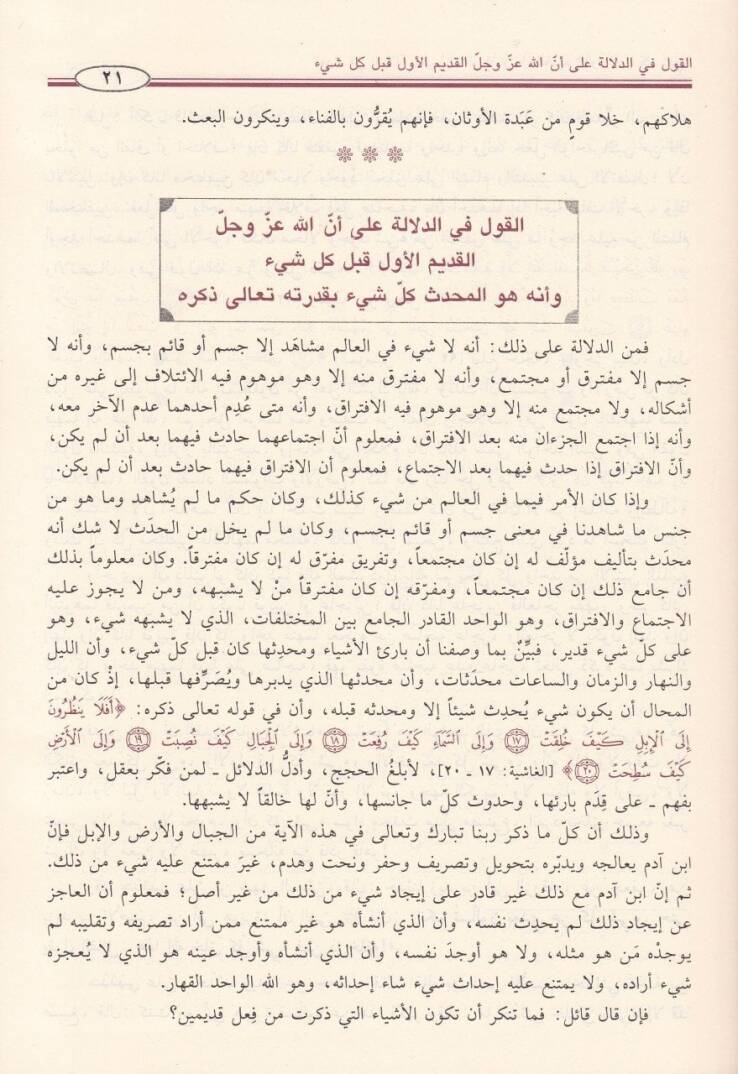 القول في الدلالة على أنّ الله عزّ وجلّ القديم الأول قبل كل شيء
٢١
هلاكهم، خلا قومٍ من عَبَدة الأوثان، فإنهم يُقرُّون بالفناء، وينكرون البعث.
* * *
القول في الدلالة على أنّ الله عزّ وجلّ
القديم الأول قبل كل شيء
وأنه هو المحدث كلّ شيء بقدرته تعالى ذكره
فمن الدلالة على ذلك: أنه لا شيء في العالم مشاهَد إلا جسم أو قائم بجسم، وأنه لا
جسم إلا مفترق أو مجتمع، وأنه لا مفترق منه إلا وهو موهوم فيه الائتلاف إلى غيره من
أشكاله، ولا مجتمع منه إلا وهو موهوم فيه الافتراق، وأنه متى عُدِم أحدهما عدم الآخر معه،
وأنه إذا اجتمع الجزءان منه بعد الافتراق، فمعلوم أنّ اجتماعهما حادث فيهما بعد أن لم يكن،
وأنّ الافتراق إذا حدث فيهما بعد الاجتماع، فمعلوم أن الافتراق فيهما حادث بعد أن لم يكن.
وإذا كان الأمر فيما في العالم من شيء كذلك، وكان حكم ما لم يُشاهد وما هو من
جنس ما شاهدنا في معنى جسم أو قائم بجسم، وكان ما لم يخل من الحدَث لا شك أنه
محدَث بتأليف مؤلّف له إن كان مجتمعاً، وتفريق مفرّق له إن كان مفترقاً. وكان معلوماً بذلك
أن جامع ذلك إن كان مجتمعاً، ومفرّقه إن كان مفترقاً منْ لا يشبهه، ومن لا يجوز عليه
الاجتماع والافتراق، وهو الواحد القادر الجامع بين المختلفات، الذي لا يشبهه شيء، وهو
على كلّ شيء قدير، فبيِّنٌ بما وصفنا أن بارئ الأشياء ومحدِثها كان قبل كلّ شيء، وأن الليل
والنهار والزمان والساعات محدَثات، وأن محدثها الذي يدبرها ويُصَرِّفها قبلها، إذْ كان من
المحال أن يكون شيء يُحدِث شيئاً إلا ومحدثه قبله، وأن في قوله تعالى ذكره: ﴿أَفَلَا يَنظُرُونَ
إِلَى الْإِبِلِ كَيْفَ خُلِقَتْ ﴿١٧﴾ وَإِلَى السَّمَاءِ كَيْفَ رُفِعَتْ ﴿١٨﴾ وَإِلَى الْجِبَالِ كَيْفَ نُصِبَتْ ﴿١٩﴾ وَإِلَى الْأَرْضِ
كَيْفَ سُطِحَتْ ﴿٢٠﴾﴾ [الغاشية: ١٧ ـ ٢٠]، لأبلغُ الحجج، وأدلُّ الدلائل ـ لمن فكّر بعقل، واعتبر
بفهم ـ على قِدَم بارئها، وحدوث كلّ ما جانسها، وأنّ لها خالقاً لا يشبهها.
وذلك أن كلّ ما ذكر ربنا تبارك وتعالى في هذه الآية من الجبال والأرض والإبل فإنّ
ابن آدم يعالجه ويدبّره بتحويل وتصريف وحفر ونحت وهدم، غيرَ ممتنع عليه شيء من ذلك.
ثم إنّ ابن آدم مع ذلك غير قادر على إيجاد شيء من ذلك من غير أصل؛ فمعلوم أن العاجز
عن إيجاد ذلك لم يحدِث نفسه، وأن الذي أنشأه هو غير ممتنع ممن أراد تصريفه وتقليبه لم
يوجدْه مَن هو مثله، ولا هو أوجدَ نفسه، وأن الذي أنشأه وأوجد عينه هو الذي لا يُعجزه
شيء أراده، ولا يمتنع عليه إحداث شيء شاء إحداثه، وهو الله الواحد القهار.
فإن قال قائل: فما تنكر أن تكون الأشياء التي ذكرت من فِعل قديمين؟